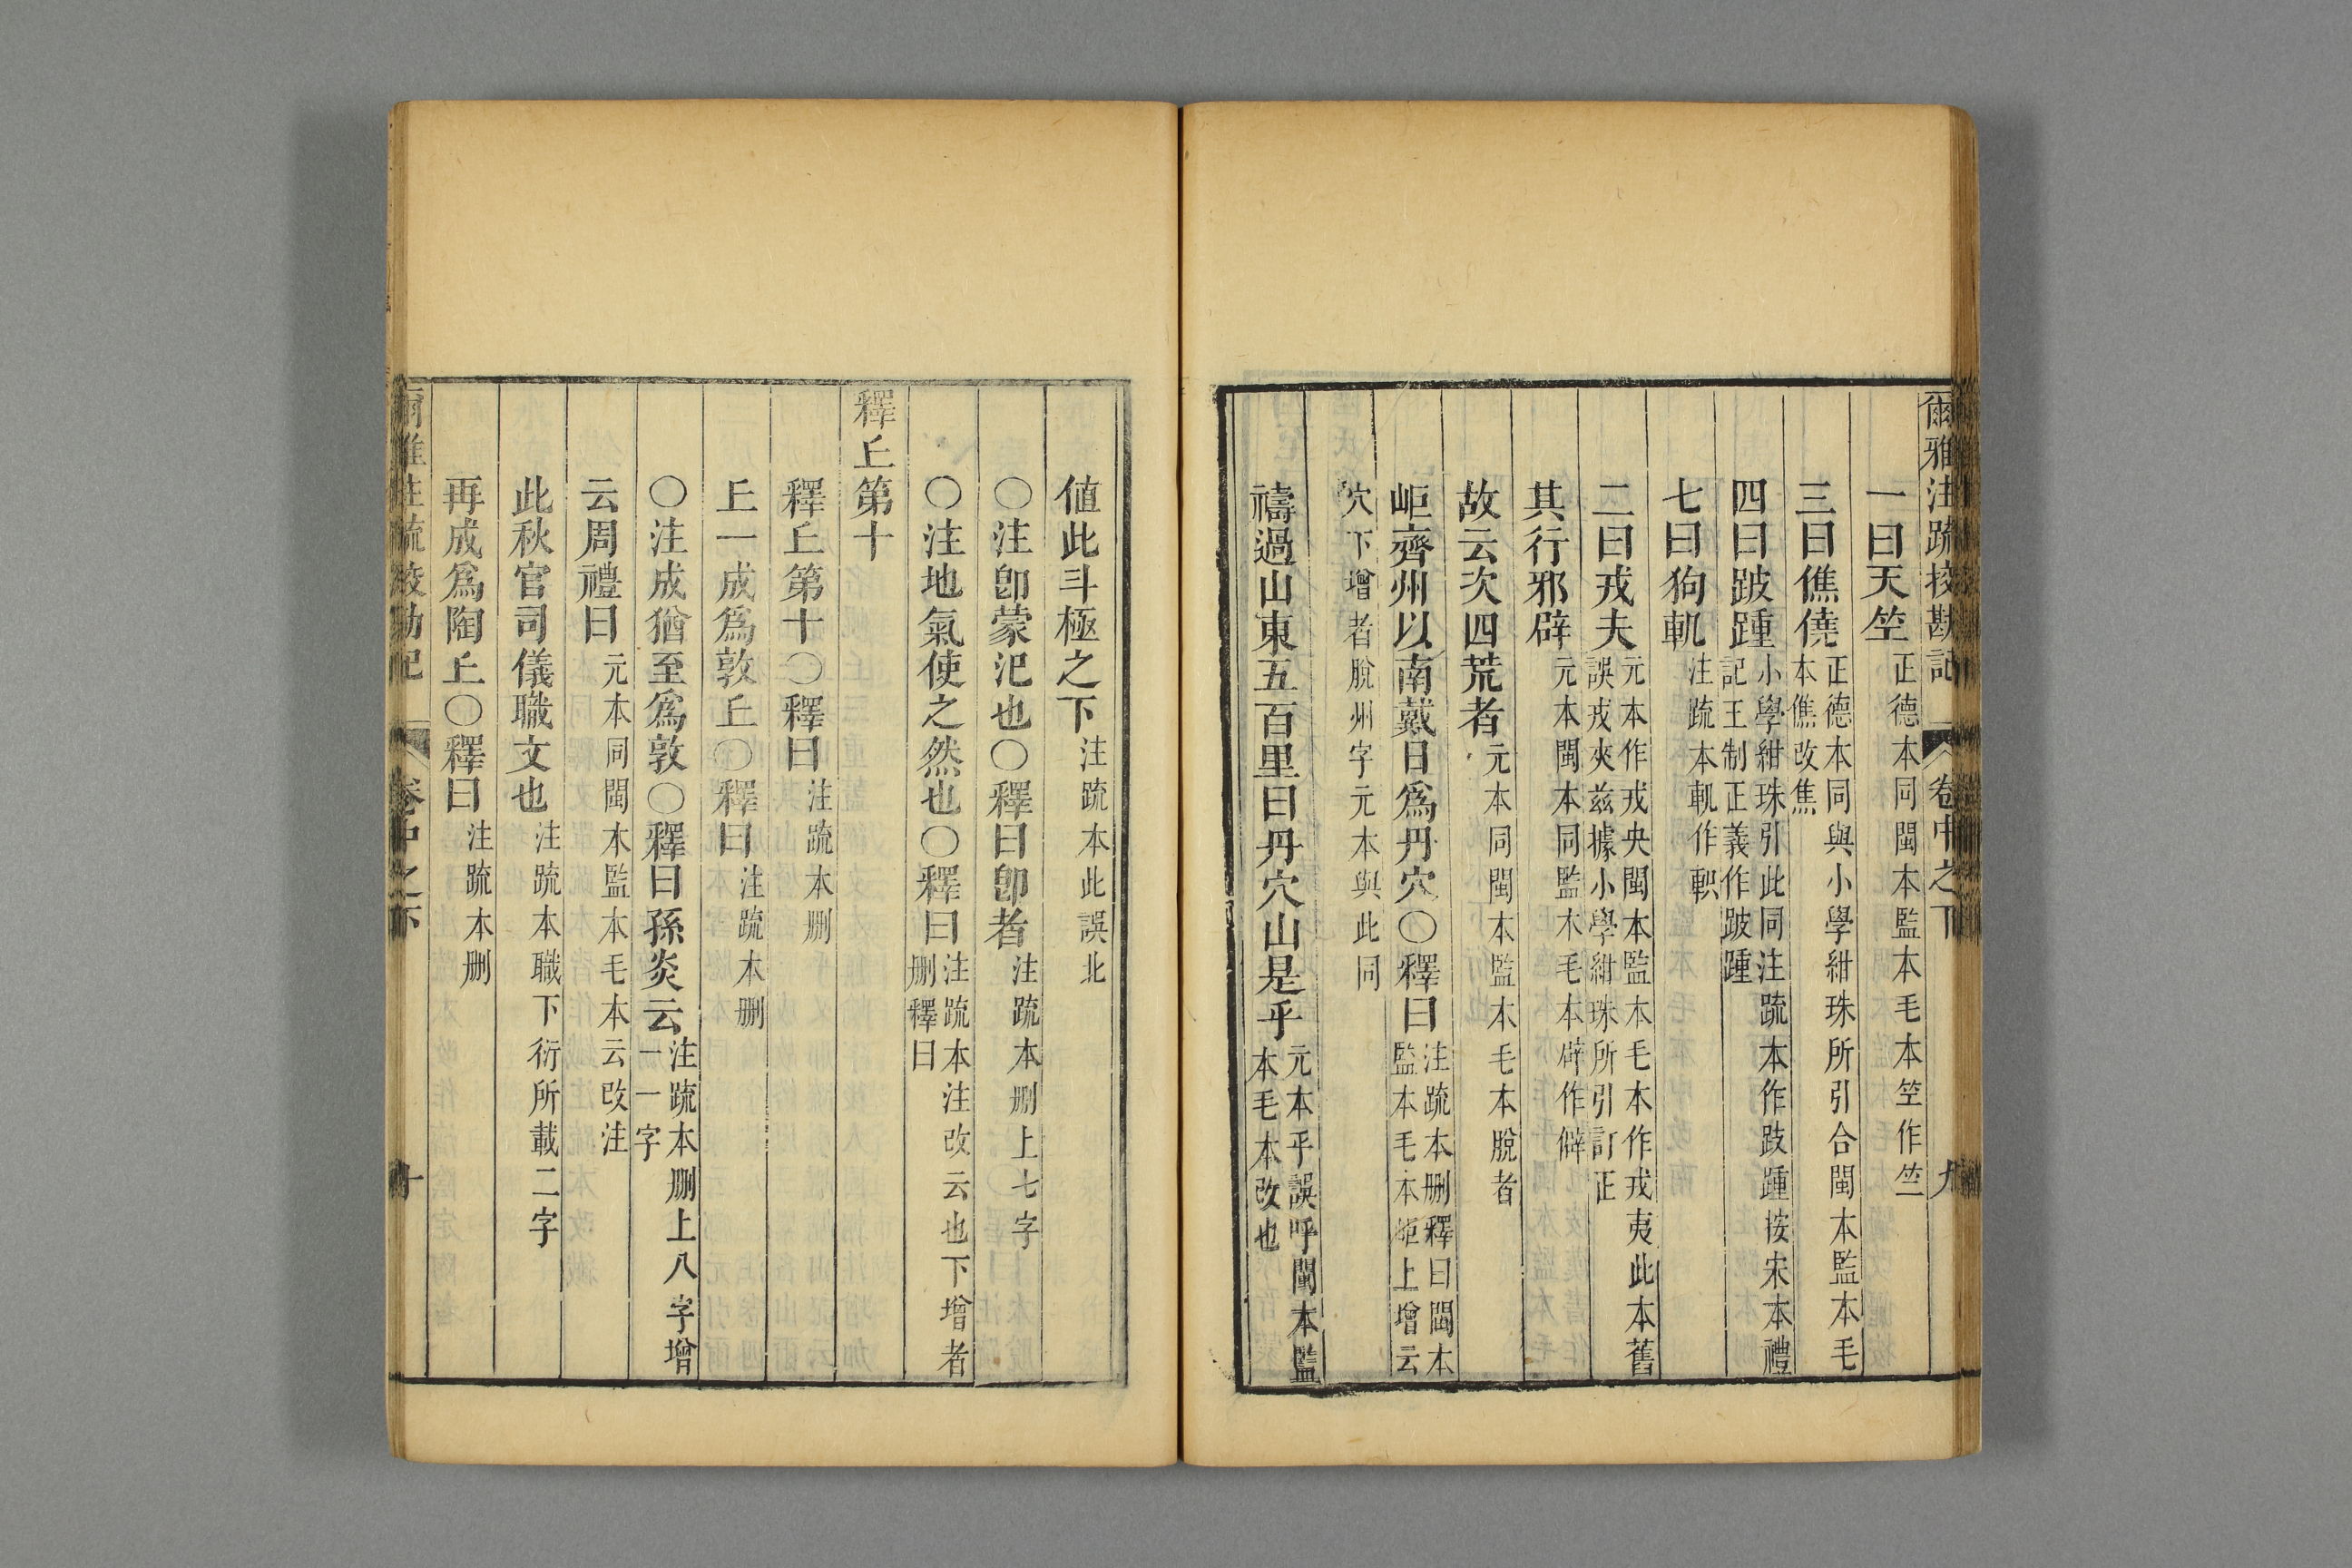 爾雅注疏挍勘記 卷中之下 九
一曰天竺正德本同閩本監本毛本竺作竺
三曰僬僥正德本同與小學紺珠所引合閩本監本毛本僬改焦
四曰跛踵小學紺珠引此同注疏本作跂踵按宋本禮記王制正義作跛踵
七曰狗軌注疏本軌作軹
二曰戎夫元本作戎央閩本監本毛本作戎夷此本舊誤戎夾茲據小學紺珠所引訂正
其行邪辟元本閩本同監本毛本辟作僻
故云次四荒者元本同閩本監本毛本脫者
岠齊州以南戴日爲丹穴〇釋曰注疏本刪釋曰閩本監本毛本岠上增云
穴下增者脫州字元本與此同
禱過山東五百里曰丹穴山是乎元本乎誤呼閩本監本毛本改也
値此斗極之下注疏本此誤北
〇注卽蒙汜也〇釋曰卽者注疏本刪上七字
〇注地氣使之然也〇釋曰注疏本注改云也下增者刪釋曰
釋丘第十
釋丘第十〇釋曰注疏本刪
丘一成爲敦丘〇釋曰注疏本刪
〇注成猶至爲敦〇釋曰孫炎云注疏本刪上八字增一一字
云周禮曰元本同閩本監本毛本云改注
此秋官司儀職文也注疏本職下衍所載二字
再成爲陶丘〇釋曰注疏本刪
爾雅注疏挍勘記 卷中之下 十